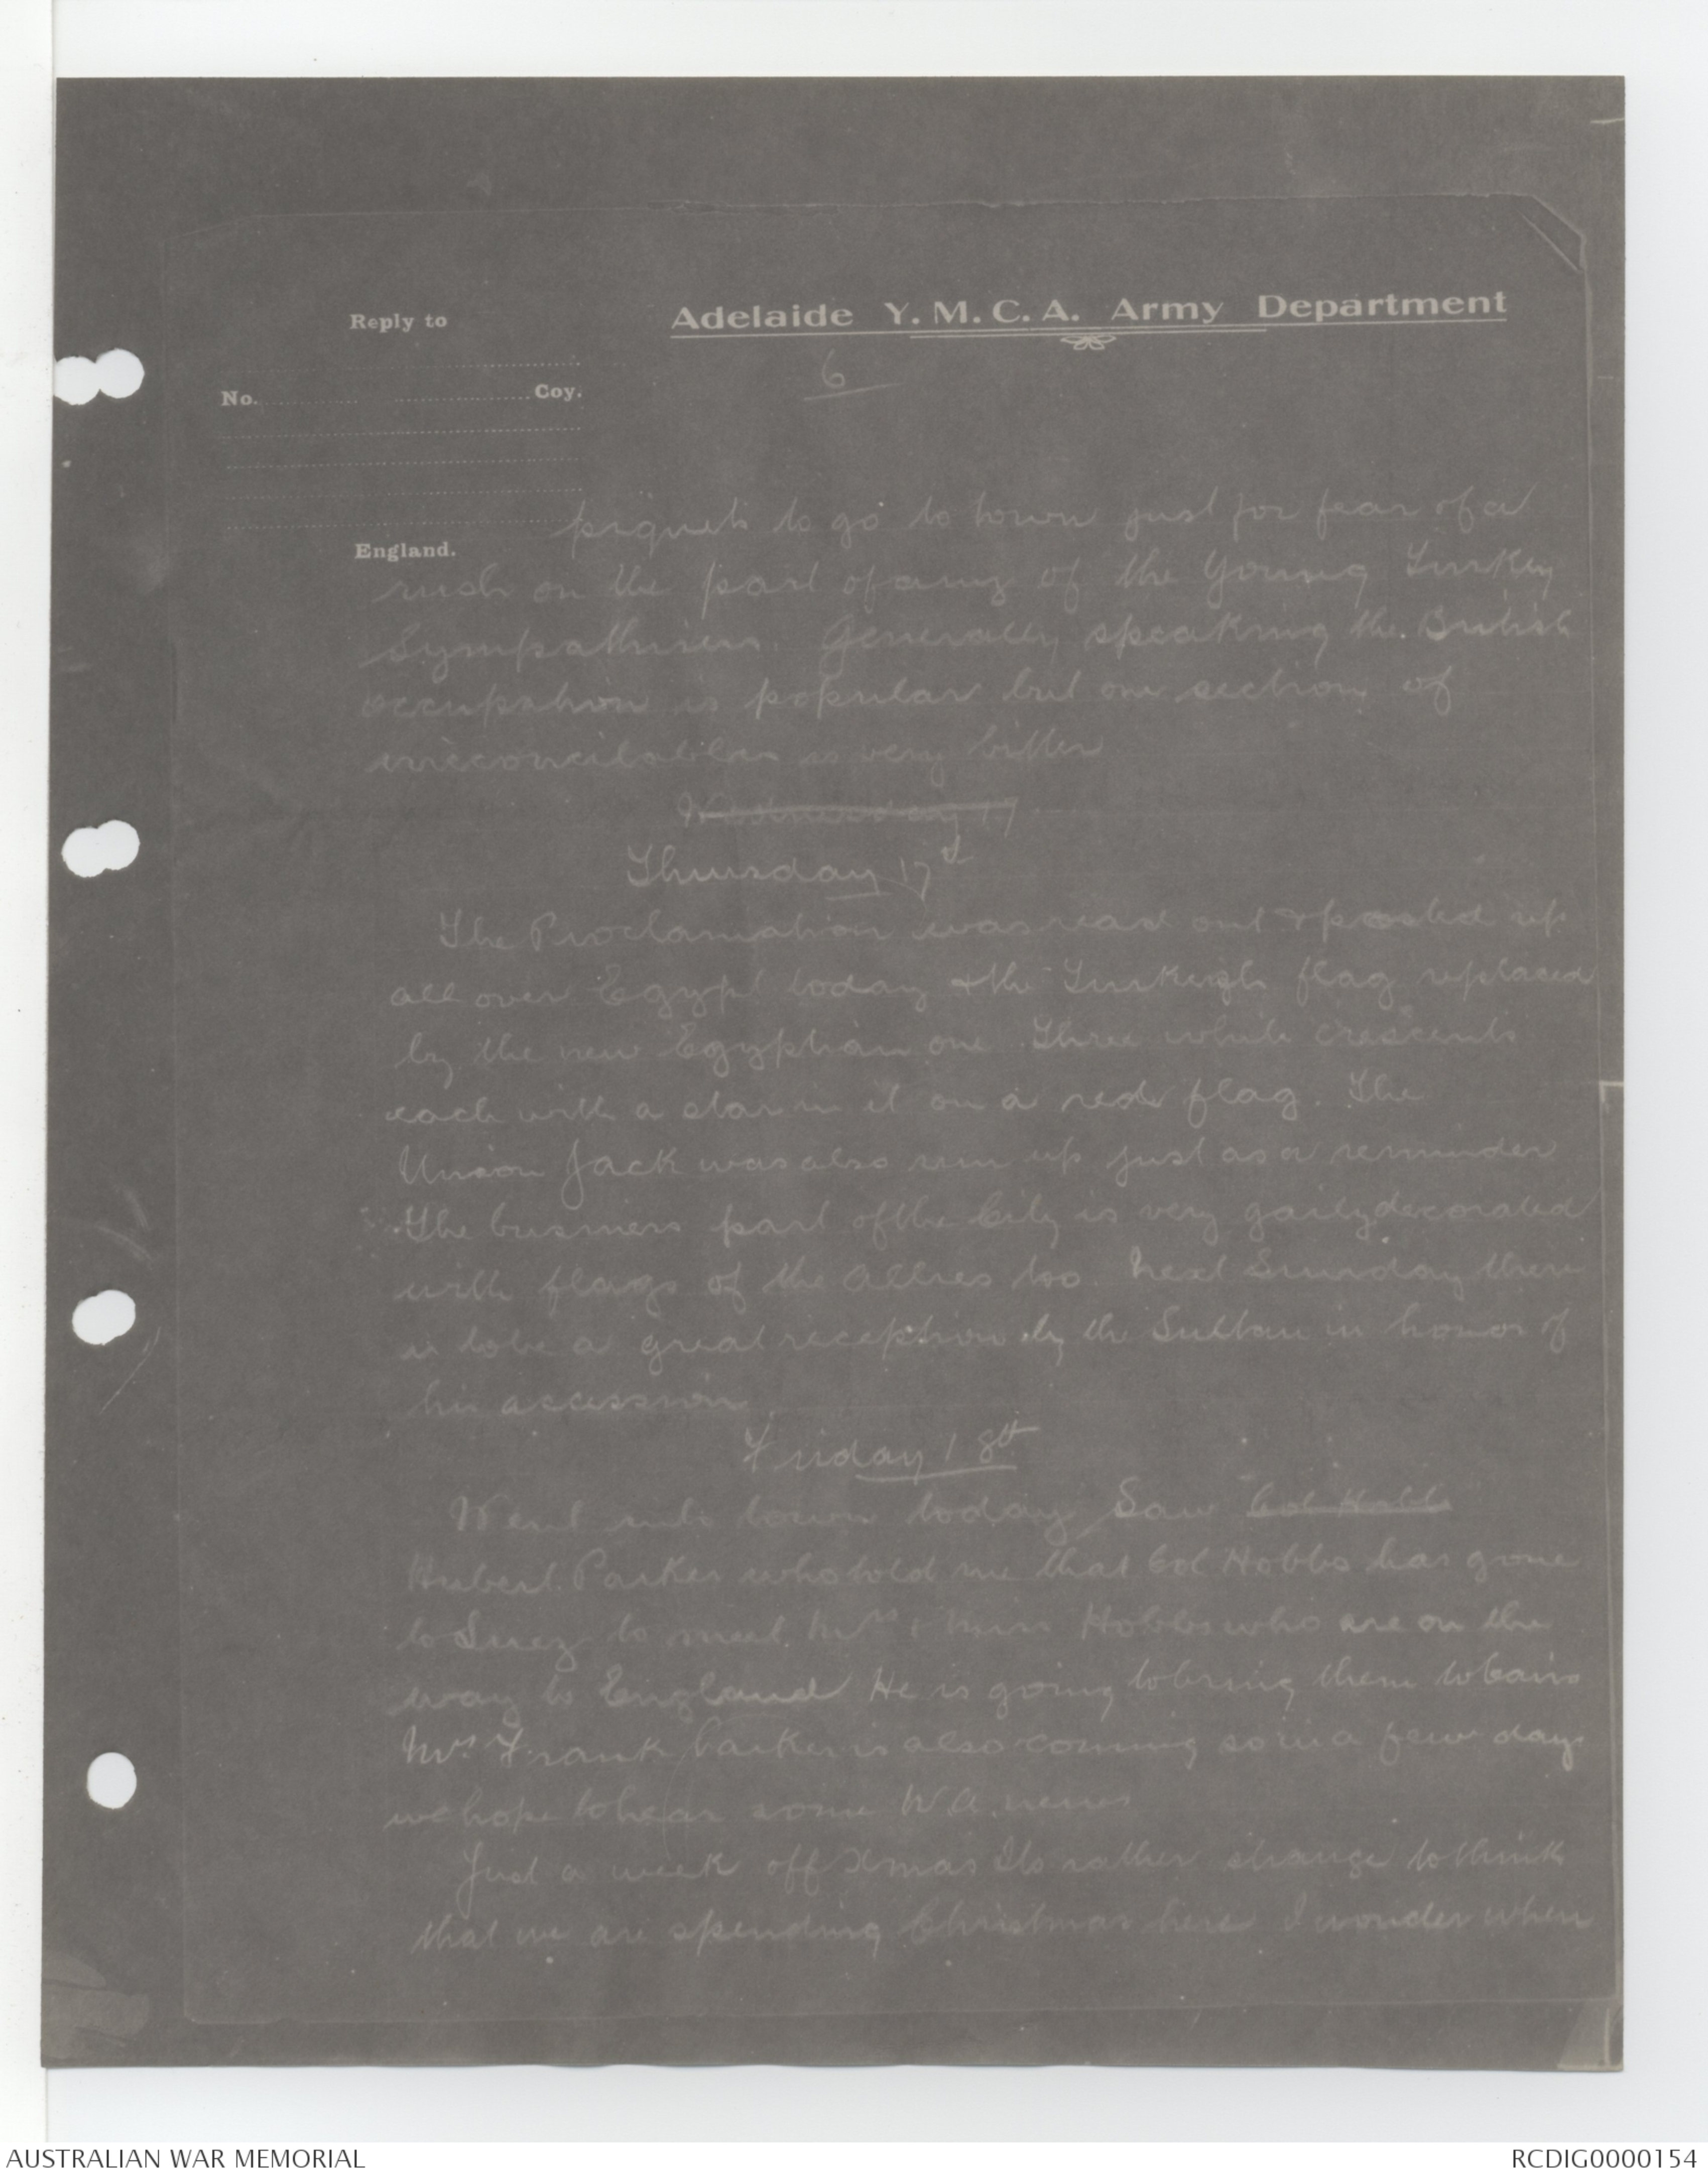 Reply to
Adelaide Y. M. C. A. Army Department
6
No. Coy.
England.
piquets to go to town just for fear of a
rush on the part of any of the Young Turkey
Sympathisers. Generally speaking the British
occupation is popular but one section of
irreconcilables is very bitter
Wednesday 17
Thursday 17th
The Proclamation was read out & posted up
all over Egypt today & the Turkish flag replaced
by the new Egyptian one. Three white crescents
each with a star in it on a red flag. The
Union Jack was also run up just as a reminder
The business part of the City is very gaily decorated
with flags of the Allies too. Next Sunday there
is to be a great reception by the Sultan in honor of
his accession.
Friday 18th
Went into town today Saw Col Hobb
Hubert Parker who told me that Col Hobbs has gone
to Suez to meet Mrs & Miss Hobbs who are on the
way to England He is going to bring them to Cairo
Mrs Frank Parker is also coming so in a few days
we hope to hear some W.A. news
Just a week off Xmas Its rather strange to think
that we are spending Christmas here I wonder when
AUSTRALIAN WAR MEMORIAL
RCDIG0000154